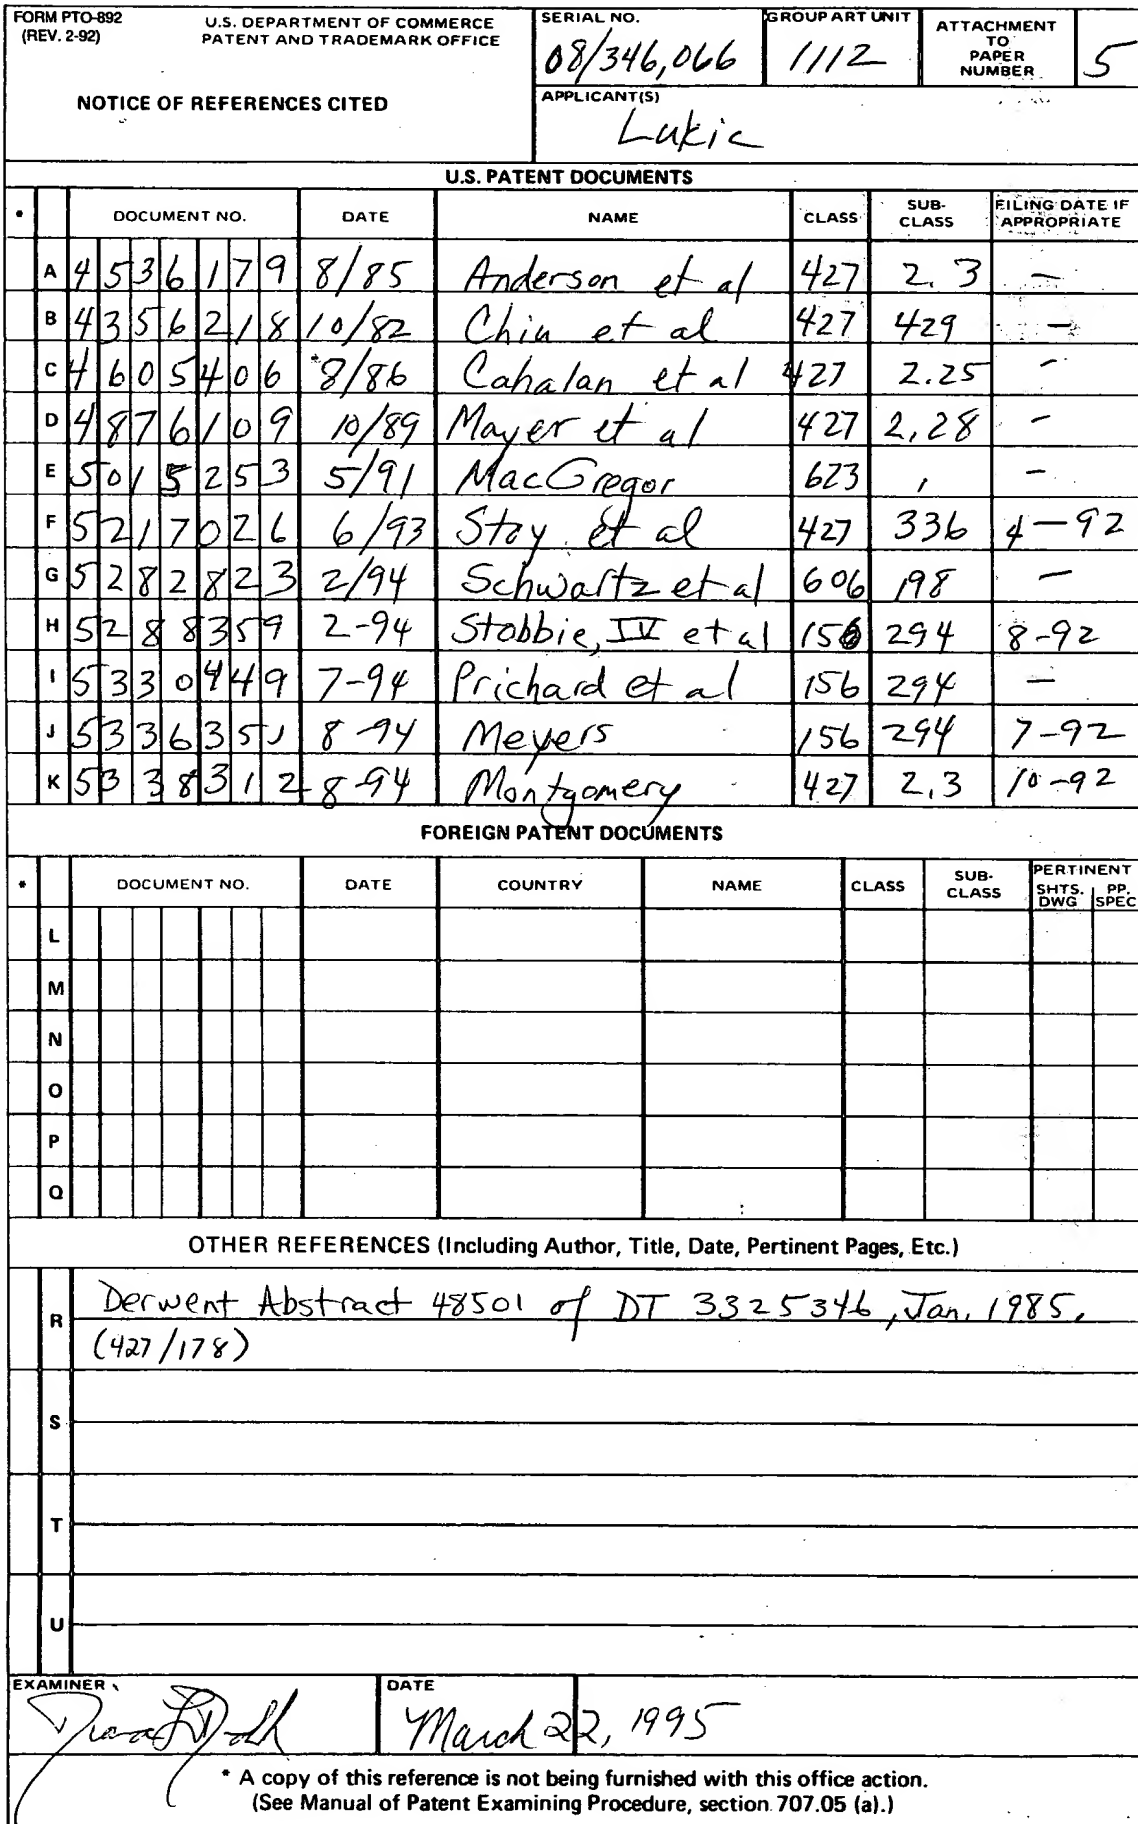 FORM PTO-892
(REV. 2-92)
U.S. DEPARTMENT OF COMMERCE
PATENT AND TRADEMARK OFFICE
NOTICE OF REFERENCES CITED
SERIAL NO.
08/346,066
GROUP ART UNIT
1112
ATTACHMENT
TO
PAPER
NUMBER
5
APPLICANT(S)
Lukic
U.S. PATENT DOCUMENTS
* DOCUMENT NO. DATE NAME CLASS SUB-CLASS FILING DATE IF APPROPRIATE
A 4536179 8/85 Anderson et al 427 2.3 —
B 4356218 10/82 Chiu et al 427 429 —
C 4605406 8/86 Cahalan et al 427 2.25 -
D 4876109 10/89 Mayer et al 427 2.28 -
E 5015253 5/91 MacGregor 623 1 -
F 5217026 6/93 Stoy et al 427 336 4-92
G 5282823 2/94 Schwartz et al 606 198 —
H 5288359 2-94 Stobbie, IV et al 156 294 8-92
I 5330449 7-94 Prichard et al 156 294 —
J 5336351 8-94 Meyers 156 294 7-92
K 5338312 8-94 Montgomery 427 2.3 10-92
FOREIGN PATENT DOCUMENTS
* DOCUMENT NO. DATE COUNTRY NAME CLASS SUB-CLASS PERTINENT SHTS. DWG PP. SPEC
L
M
N
O
P
Q
OTHER REFERENCES (Including Author, Title, Date, Pertinent Pages, Etc.)
R Derwent Abstract 48501 of DT 3325346, Jan. 1985.
(427/178)
S
T
U
EXAMINER
DATE
March 22, 1995
* A copy of this reference is not being furnished with this office action.
(See Manual of Patent Examining Procedure, section 707.05 (a).)